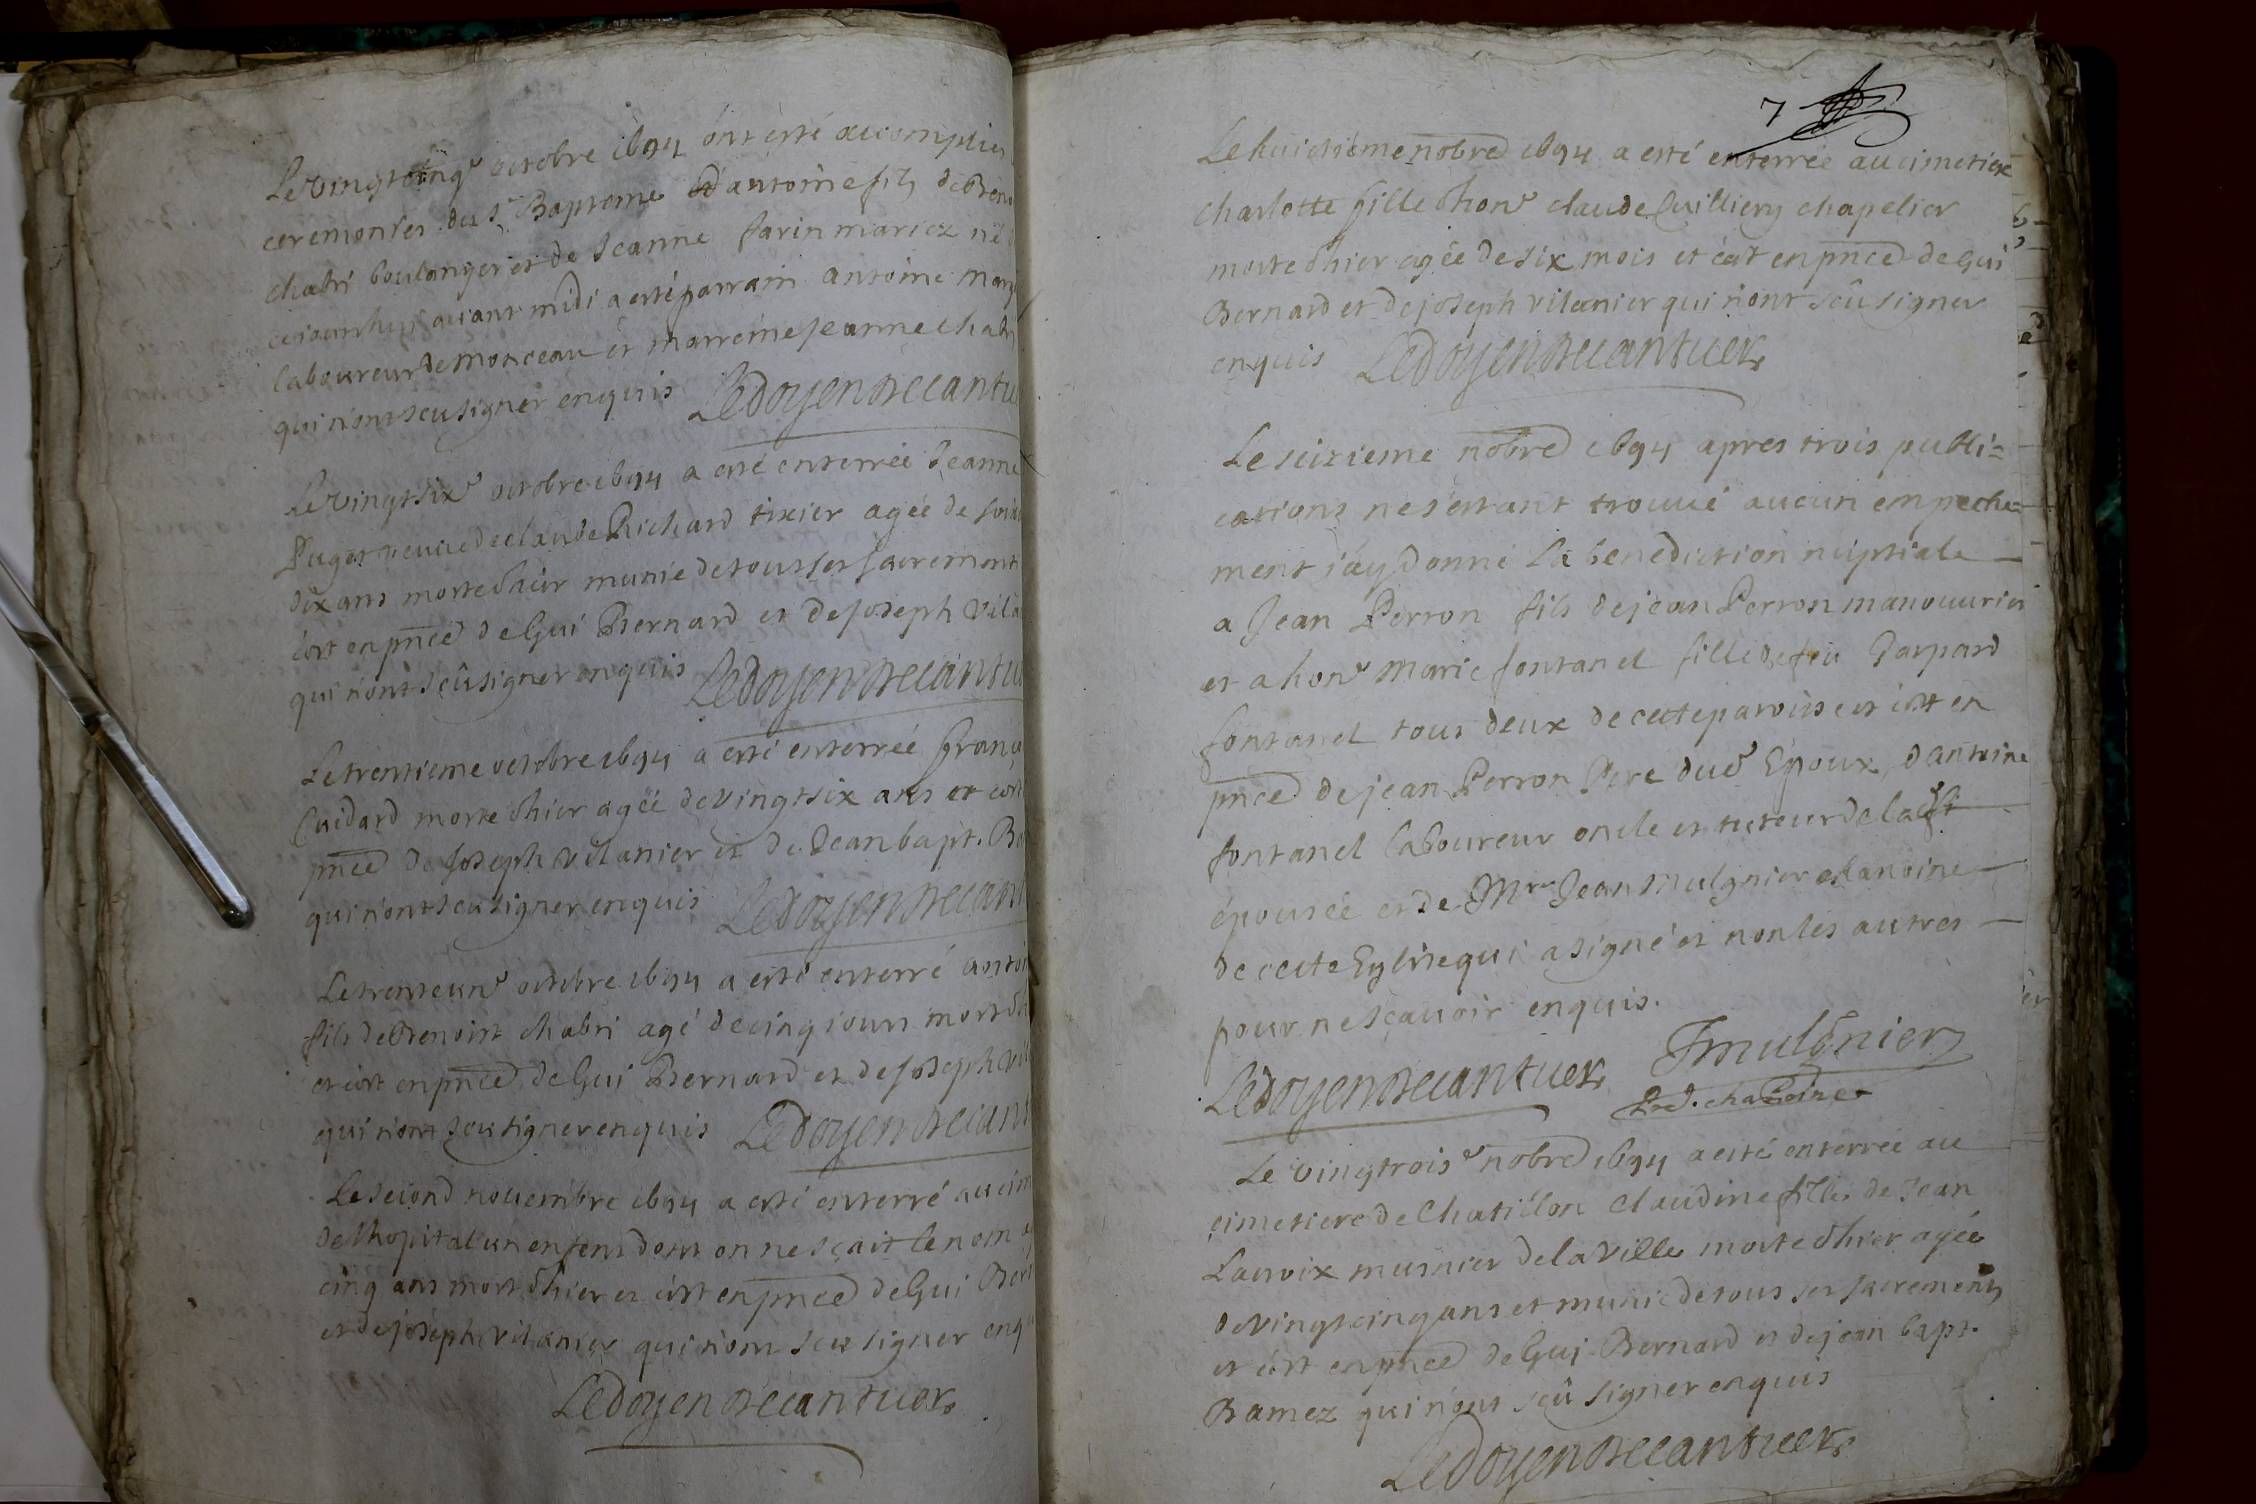 Le vingtcinqe octobre 1694 ont esté accomplies
ceremonies du St Baptome d'antoine fils de Beno
chabri boulanger et de Jeanne farin mariez né
ce jourdhui avant midi a esté parrain antoine
laboureur de monceau et marreine Jeanne chabr
qui n'ont sceu signer enquis Ledoyen Decantu
Le vingtsixe octobre 1694 a esté enterrée Jeanne
Puget veuve de claude Richard tixier agée de soixa
dix ans morte d'hier munie de tous ses sacrements
c'est en pnce de Gui Bernard et de Joseph vila
qui n'ont sceû signer enquis Ledoyen Decantu
Le trentieme octobre 1694 a esté enterrée franç
Cuidard morte d'hier agée de vingtsix ans et c'est
pnce de Joseph vilanier et de Jean bapt. Ba
qui n'ont sceu signer enquis Ledoyen Decant
Le trenteune octobre 1694 a esté enterré antoi
fils de Benoist chabri agé de cinq jours mort d'h
et c'est en pnce de Gui Bernard et de Joseph vil
qui n'ont sceu signer enquis Ledoyen Decant
Le second novembre 1694 a esté enterré au cim
de l'hopital un enfent dont on ne sçait le nom
cinq ans mort d'hier et c'est en pnce de Gui Bern
et de joseph vilanier qui n'ont sceu signer enqu
Ledoyen Decantuer
7
Le huictiéme nobre 1694 a esté enterrée au cimetiere
charlotte fille d'hone claude Cuilliery chapelier
morte d'hier agée de six mois et c'est en pnce de Gui
Bernard et de joseph vilanier qui n'ont sceû signer
enquis Ledoyen Decantuer
Le seizieme nobre 1694 apres trois publi=
cations ne s'estant trouué aucun empeche=
ment j'ay donné la benediction nuptiale
a Jean Perron fils de jean Perron manouurier
et a hone Marie fontanel fille de feu Gaspard
fontanel tous deux de cette paroisse et c'est en
pnce de jean Perron Pere dud Epoux, d'antoine
fontanel laboureur oncle et tuteur de lad
épousée et de Mre Jean Mulgnier chanoine
de cette Eglise qui a signé et non les autres
pour ne sçauoir enquis.
Ledoyen Decantuer Jmulgnier
Pred. chanoine
Le vingtroise nobre 1694 a esté enterrée au
cimetiere de Chatillon Claudine fille de Jean
Lacroix musnier de la ville morte d'hier agée
de vingtcinq ans et munie de tous ses sacrements
et c'est en pnce de Gui Bernard et de jean bapt.
Bamez qui n'ont sceû signer enquis
Ledoyen Decantuer